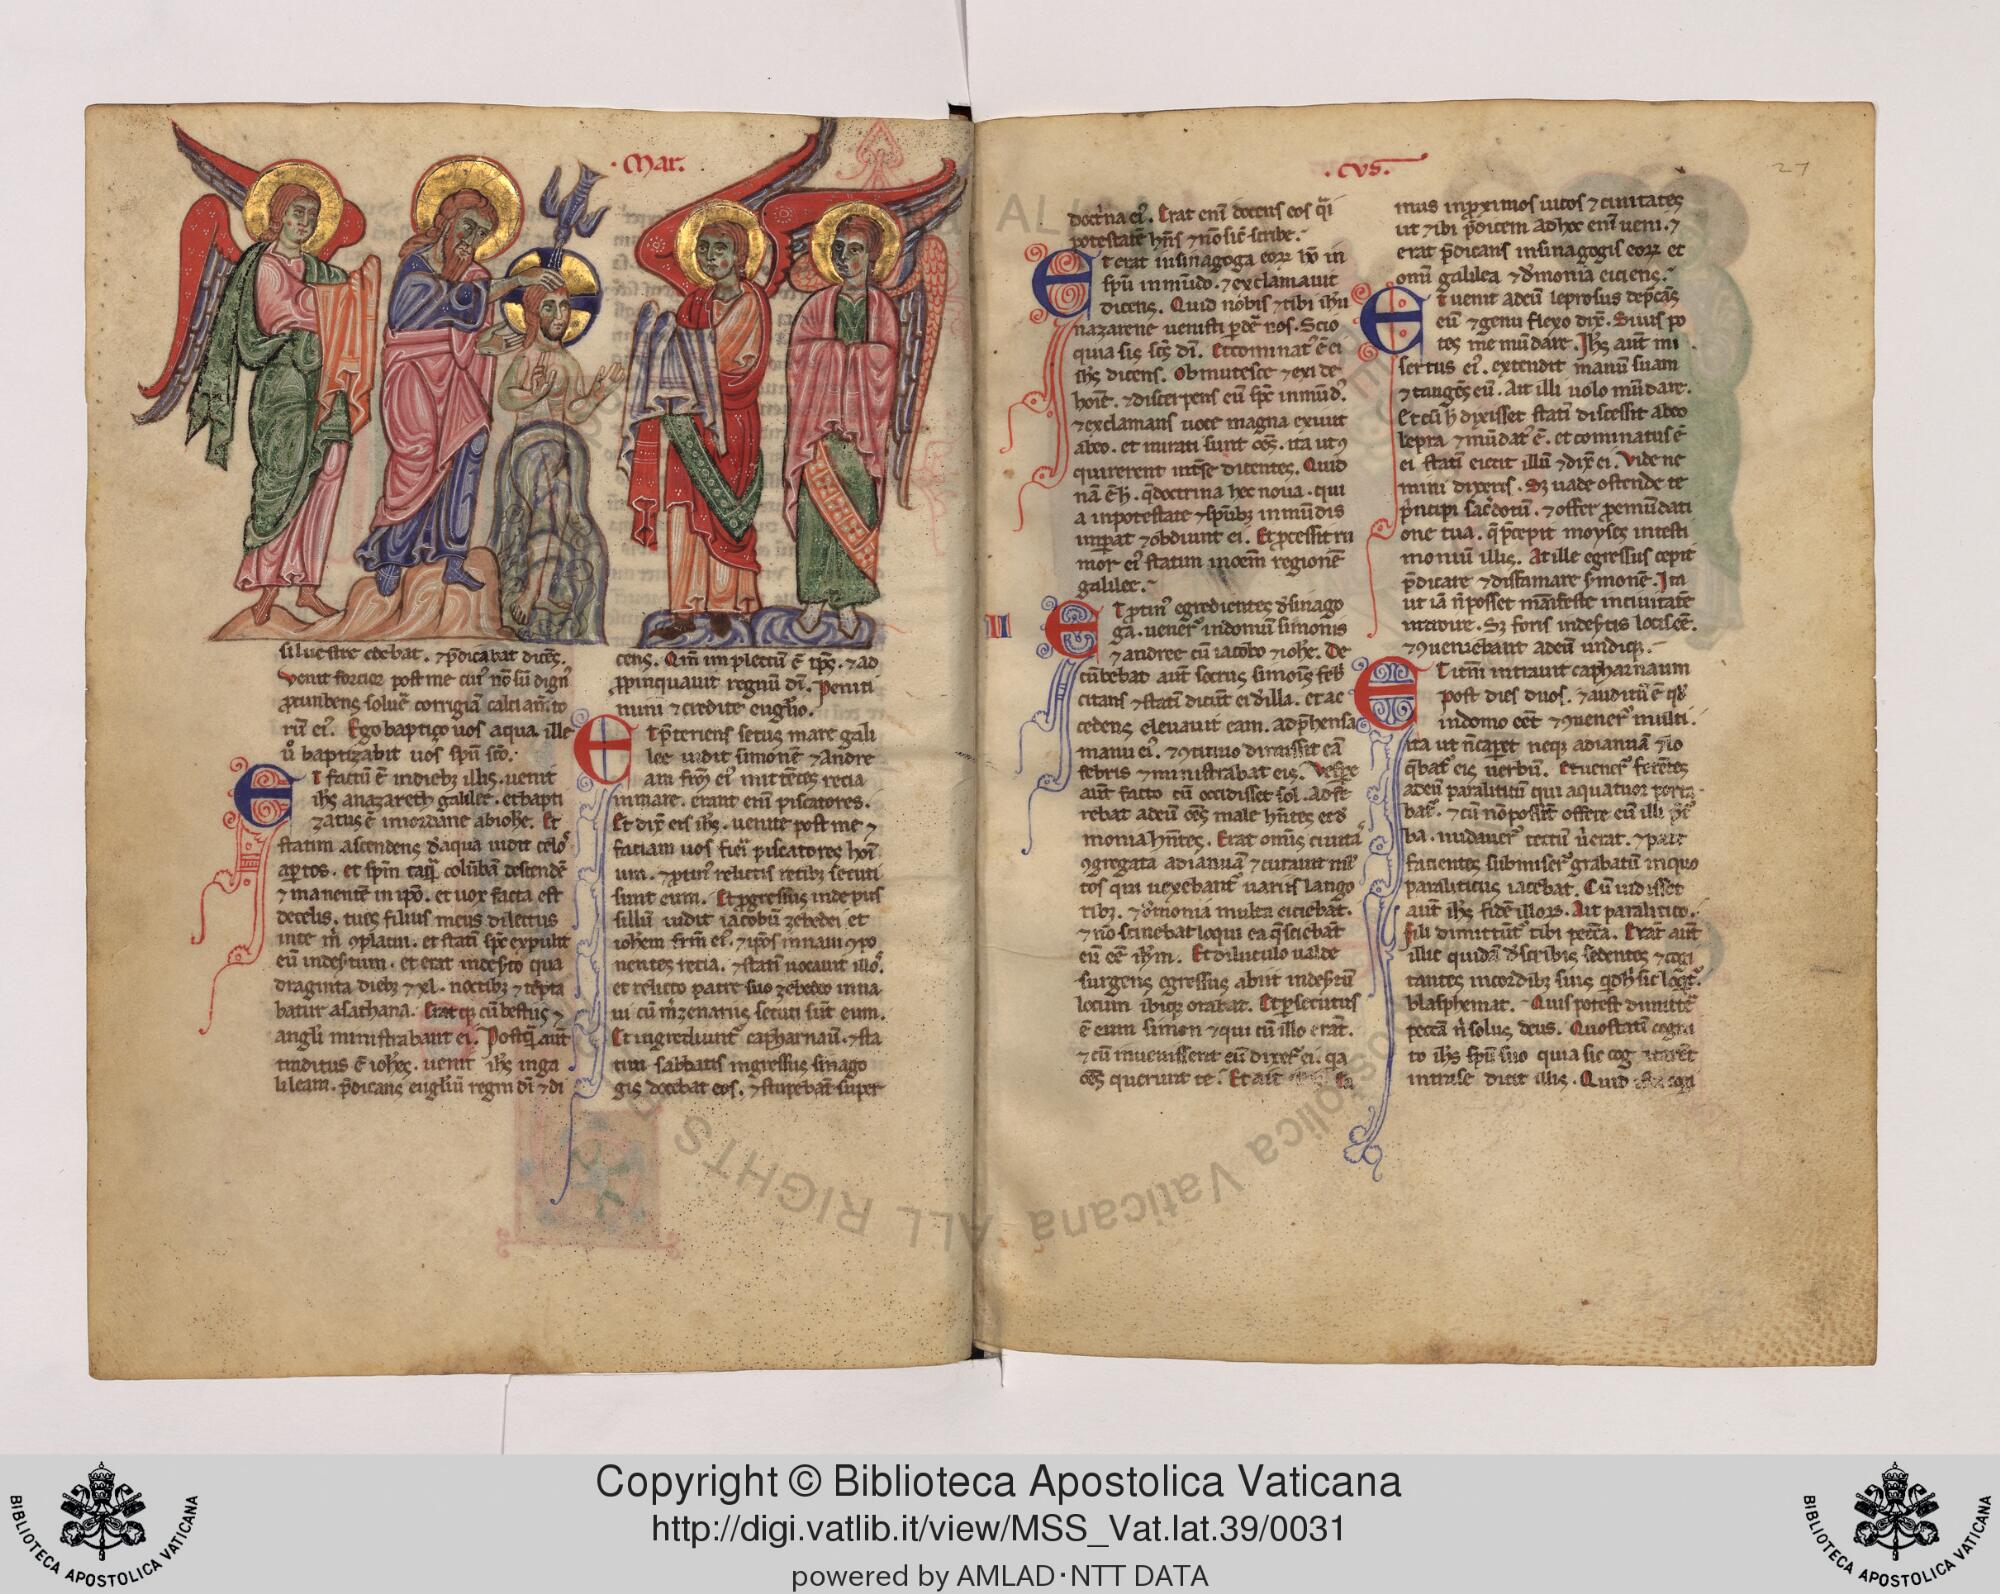 · Mar̄.
siluestre edebat. ⁊ p̄dicabat dicēs.
Venit fortior post me cuiꝰ nō sū dignꝰ
ꝓcūbens soluē corrigiā calciam̄to
rū eiꝰ. Ego baptiço uos aqua. ille
uͦ baptizabit uos spū sc̄o.
Et factū ē indiebꝫ illis. uenit
ih̄s anazareth galilee. et bapti
zatus ē iniordane abioh̄e. Et
statim ascendens daqua uidit celoꝰ
aꝑtos. et sp̄m taq̄ colūbam descendē
⁊ manentē in ip̄o. et uox facta est
decelis. tu es filius meus dilectus
inte m̄ ꝯplacui. et statī sp̄c expulit
eū indeẜtum. et erat indeẜto qua
draginta diebꝫ ⁊ xl. noctibꝫ ⁊ tēpta
batur asathana. Eratqꝫ cū bestiis ⁊
angl̄i ministrabant ei. Postq̄ aūt
traditus ē ioh̄es. uenit ih̄s inga
lileam. p̄dicans eugl̄iū regni dī ⁊ di
cens. Qm̄ impletum ē tp̄s. ⁊ ad
ꝓpinquauit regnū dī. Peniti
mini ⁊ credite eugl̄io.
Et p̄teriens secus mare gali
lee uidit simonē ⁊ andre
am fr̄em eiꝰ mittētes recia
inmare. erant enī piscatores.
Et dix̄ eis ih̄s. uenite post me ⁊
faciam uos fieri piscatores hoī
um. ⁊ ꝓtinꝰ relictis retibꝫ secuti
sunt eum. Et ꝓgressus inde pus
sillū uidit iacobū zebedei et
ioh̄em fr̄em eiꝰ ⁊ ip̄os innaui ꝯpo
nentes recia. ⁊ statī uocauit illoꝰ.
et relicto patre suo zebedeo inna
ui cū m̄cenariis secuti sūt eum.
Et ingrediunt̄ capharnaū. ⁊ sta
tim sabbatis ingressus sinago
gis docebat eos. ⁊ stupebāt super
· cvs.
27
doct̄na eiꝰ. Erat enī docens eos q̄i
potestatē hn̄s ⁊ nō sic scribe.
Et erat insinagoga eoꝝ hō in
spū inmūdo. ⁊ exclamauit
dicens. Quid nobis ⁊ tibi ih̄u
nazarene uenisti ꝑdē nos. Scio
quia sis sc̄s dī. Et cominatꝰ ē ei
ih̄s dicens. Obmutesce ⁊ exi de
hoīe. ⁊ discerpens eū sp̄c inmūdꝰ.
⁊ exclamans uoce magna exiuit
abeo. et mirati sunt oēs. ita ut ꝯ
quirerent int̄se dicentes. Quid
nā ē h̄. q̄ doctrina hec noua. qui
a inpotestate ⁊ spiritibꝫ inmūdis
imꝑat ⁊ obediunt ei. Et ꝓcessit ru
mor eiꝰ statim inoem̄ regionē
galilee.
II
Et ꝓtinꝰ egredientes d̄sinago
ga. uener̄ indomū simonis
⁊ andree cū iacobo ⁊ ioh̄e. De
cūbebat aūt socrus simoīs feb̄
citans ⁊ statī dicūt ei d̄illa. et ac
cedens eleuauit eam. adp̄hensa
manu eiꝰ. ⁊ ꝯtinuo dimissit eā
febris ⁊ ministrabat eis. Vesꝑe
aūt facto cū occidisset sol. adfe
rebat adeū oēs male hn̄tes et d̄
monia hn̄tes. Erat omīs ciuita
ꝯgregata adianuā ⁊ curauit ml̄
tos qui uexebant̄ uariis lango
ribꝫ. ⁊ d̄monia multa eiciebat.
⁊ nō sinebat loqui ea q̄ sciebāt
eū eē ih̄m. Et diluculo ualde
surgens egressus abiit indeẜtū
locum ibiqꝫ orabat. Et ꝓsecutus
ē eum simon ⁊ qui cū illo erāt.
⁊ cū inuenissent eū dixer̄ ei. q̄a
oēs querunt te. Et ait
mus inꝓximos uicos ⁊ ciuitates
ut ⁊ ibi p̄dicem adhoc enī ueni. ⁊
erat p̄dicans insinagogis eoꝝ et
omī galilea ⁊ d̄monia eiciens.
Et uenit adeū leprosus dep̄cās
eū ⁊ genu flexo dix̄. Si uis po
tes me mūdare. Ih̄s aūt mi
sertus eiꝰ. extendit manū suam
⁊ tangēs eū. Ait illi uolo mūdare.
Et cū h̄ dixisset statī discessit abeo
lepra ⁊ mūdatꝰ ē. et cominatus ē
ei statī eiecit illū ⁊ dix̄ ei. Vide ne
mini dixeris. Sꝫ uade ostende te
p̄ncipi sac̄dotū. ⁊ offer ꝓemūdati
one tua. q̄ p̄cepit moyses intesti
moniū illis. At ille egressus cepit
p̄dicare ⁊ diffamare s̄monē. Ita
ut iā n̄ posset manifeste inciuitatē
introire. Sꝫ foris indeẜtis locis eē.
⁊ ꝯueniebant adeū undiqꝫ.
Et itm̄ intrauit capharnaum
post dies duos. ⁊ auditū ē qd̄
indomo eēt ⁊ ꝯuener̄ multi.
ita ut n̄ caꝑet neqꝫ adianuā ⁊ lo
q̄bat̄ eis uerbū. Et uener̄ ferētes
adeū paraliticū qui aquatuor porta
bat̄. ⁊ cū nō possēt offerre eū illi
ba. nudauer̄ tectū u̇ erat. ⁊ pate
facientes submiser̄ grabatū inquo
paraliticus iacebat. Cū uidisset
aūt ih̄s fidē illoꝝ. Ait paralitico.
fili dimittūt̄ tibi pecc̄a. Erāt aūt
illic quidā d̄scribis sedentes ⁊ cogi
tantes incordibꝫ suis q̄d h̄ sic loq̄t̄.
blasphemat. Quis potest dimitte
pecc̄a n̄ solus deus. Quo statī cogni
to ih̄s spū suo quia sic cogitarēt
intrase dicit illis. Quid ista cogi
Copyright © Biblioteca Apostolica Vaticana
http://digi.vatlib.it/view/MSS_Vat.lat.39/0031
powered by AMLAD·NTT DATA
BIBLIOTECA APOSTOLICA VATICANA
BIBLIOTECA APOSTOLICA VATICANA